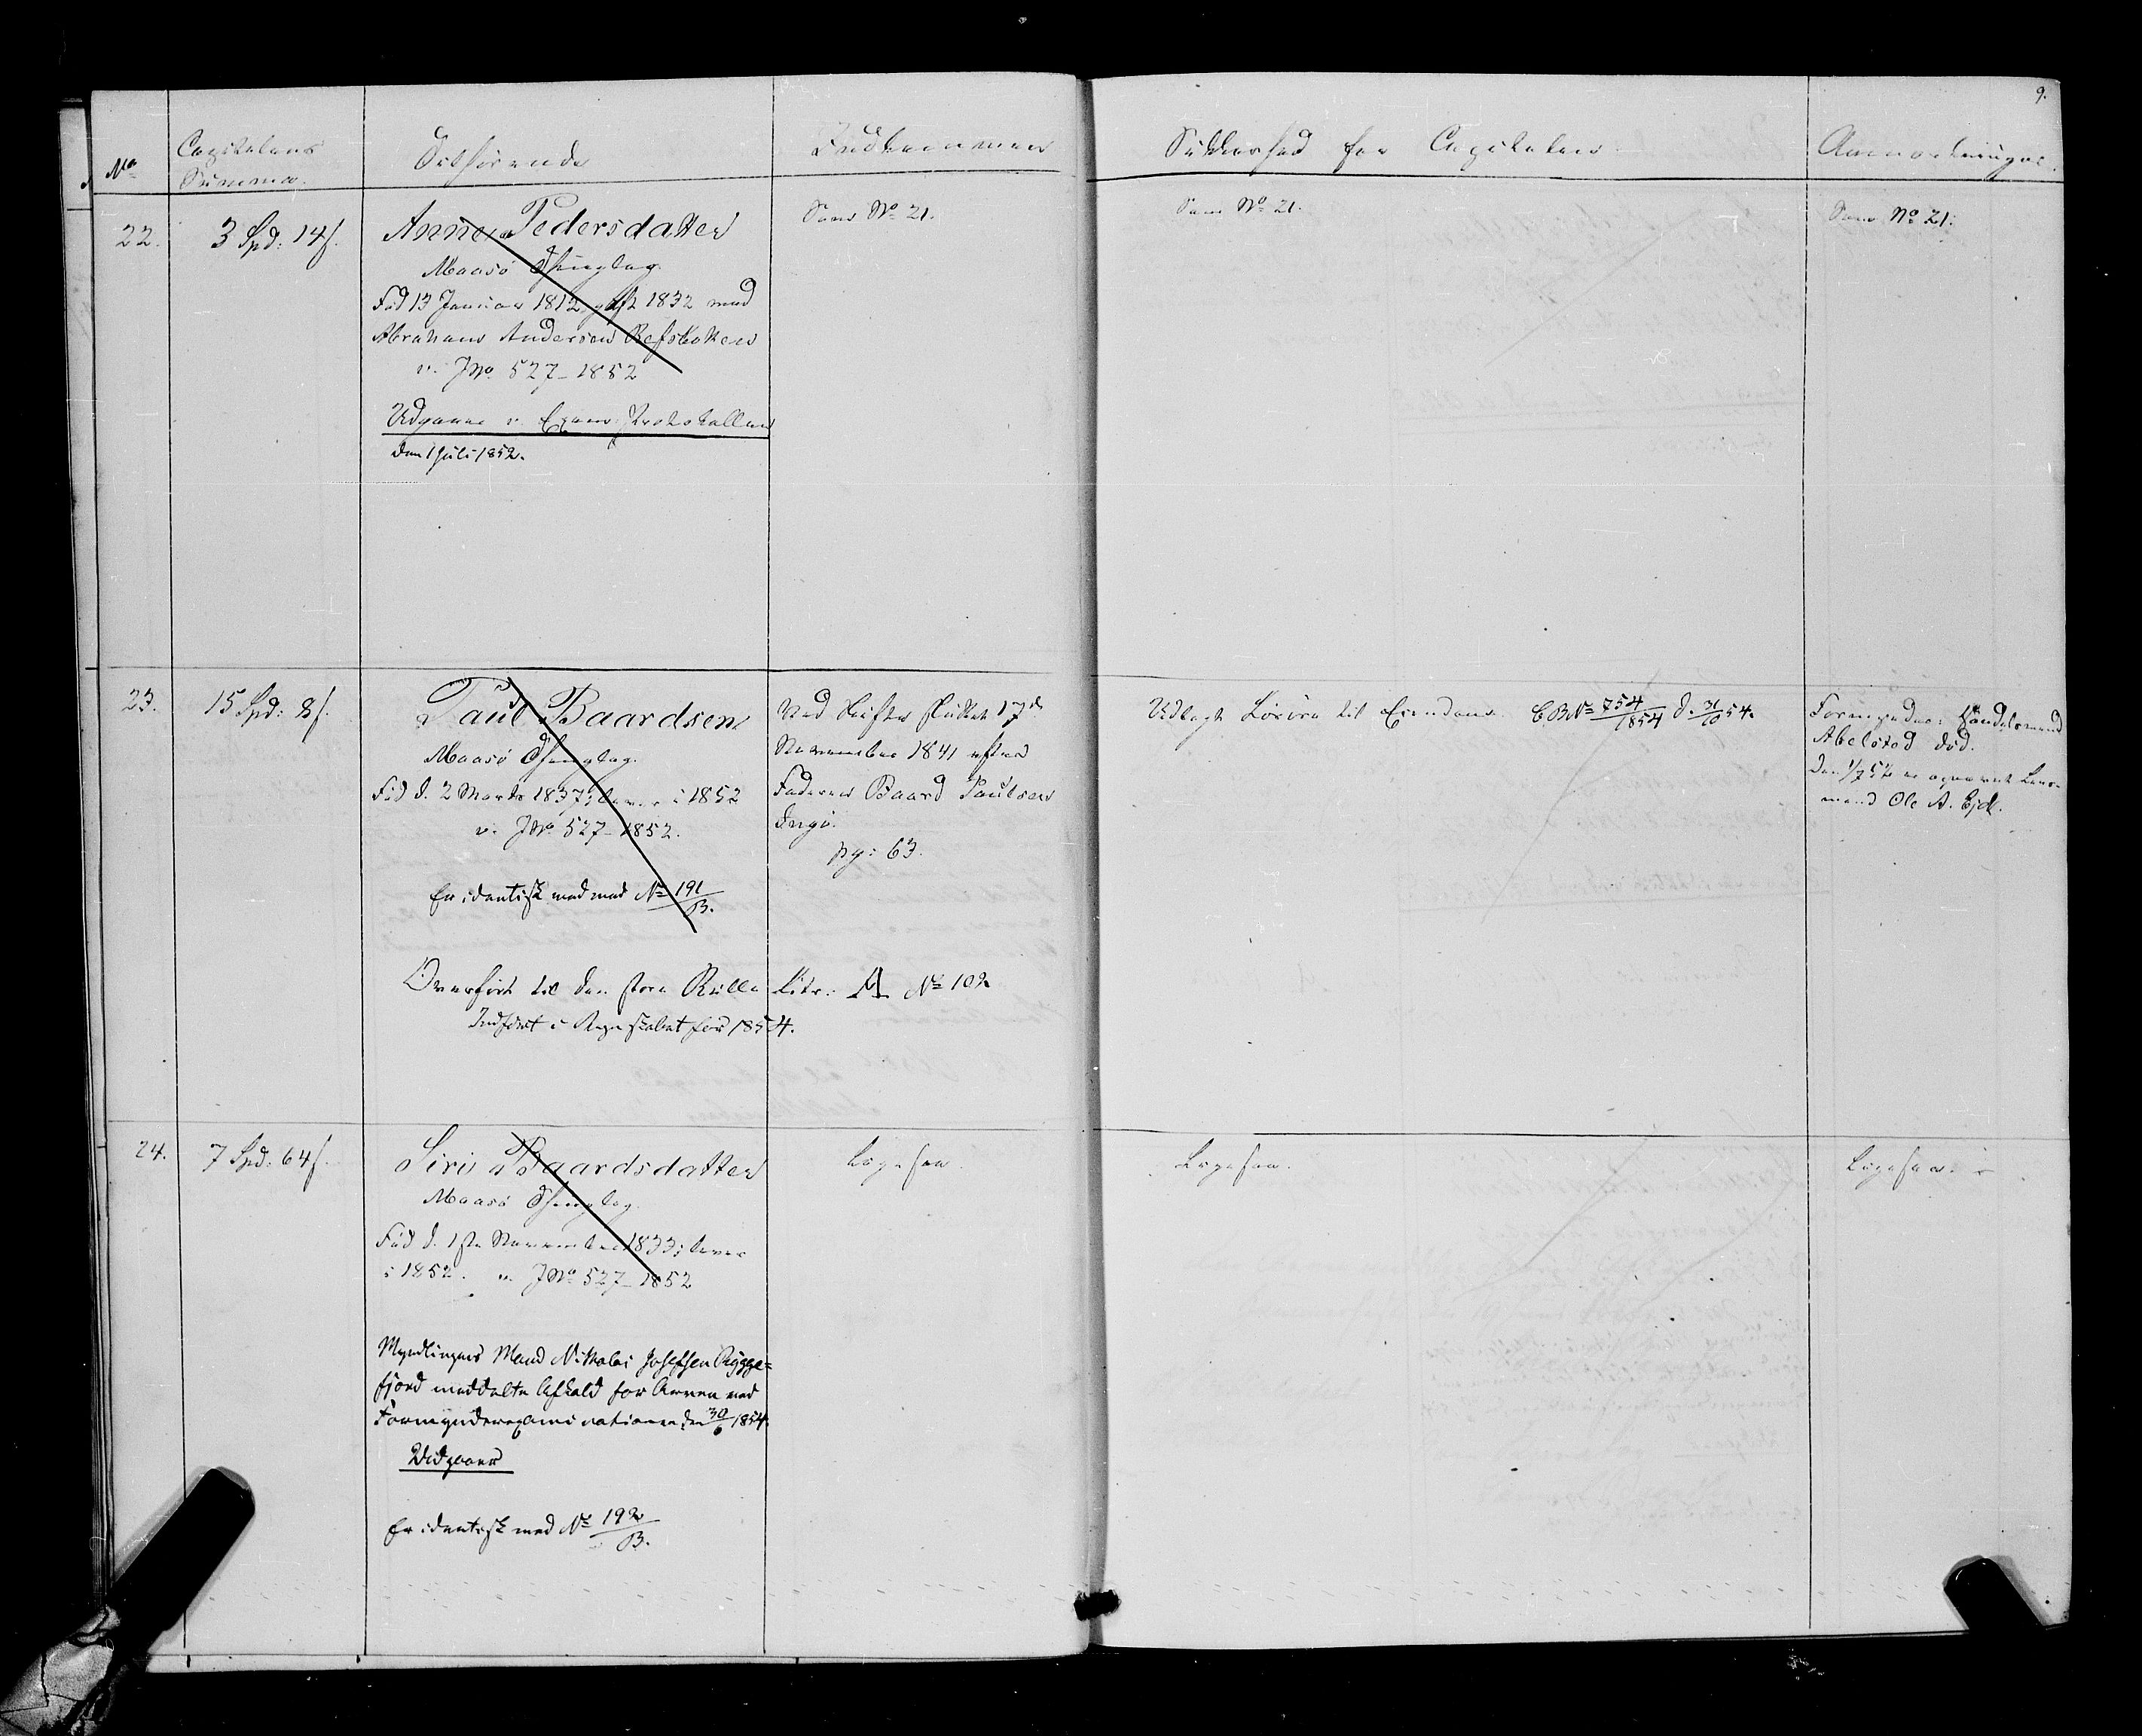 9.
No
Capitalens
Summa.
Tilhørende
Indkommen
Sikkerhed for Capitalen
Anmærkninger.
22.
3 Spd: 14 s.
Anne Pedersdatter
Maasø Thinglag.
Fød 13 Januar 1812, gift 1832 med
Abraham Andersen Refsbotten
v. J No 527-1852
Udgaaer v. Exam: Protokollen
den 1 Juli 1852.
Som No 21.
Som No 21.
Som No 21.
23.
15 Spd: 8 s.
Paul Baardsen
Maasø Thinglag.
Fød d. 2 Marts 1837; lever i 1852
v. J No 527-1852.
Er identisk med med No 191/B.
Overført til den store Rulle Litr: A No 102
Indført i Regnskabet for 1854.
Ved Skifte sluttet 17de
November 1841 efter
Faderen Baard Paulsen
Ingø.
pg: 63.
Udlagt Løsøre til Eiendom. CB No 754/1854 d. 31/10 54.
Formynder: Handelsmand
Abelsted død.
Den 1/7 52 er opnævnt Lens-
mand Ole A. Ejde.
24.
7 Spd: 64 s.
Siri Baardsdatter
Maasø Thinglag.
Fød d. 1ste November 1833; lever
i 1852. v. J No 527-1852
Myndlingens Mand Nikolai Josefsen Rygge-
fjord meddelte Afkald for Arven ved
Formynderexaminationen den 30/6 1854.
Udgaaer
Er identisk med No 192/B.
Ligesaa.
Ligesaa.
Ligesaa.